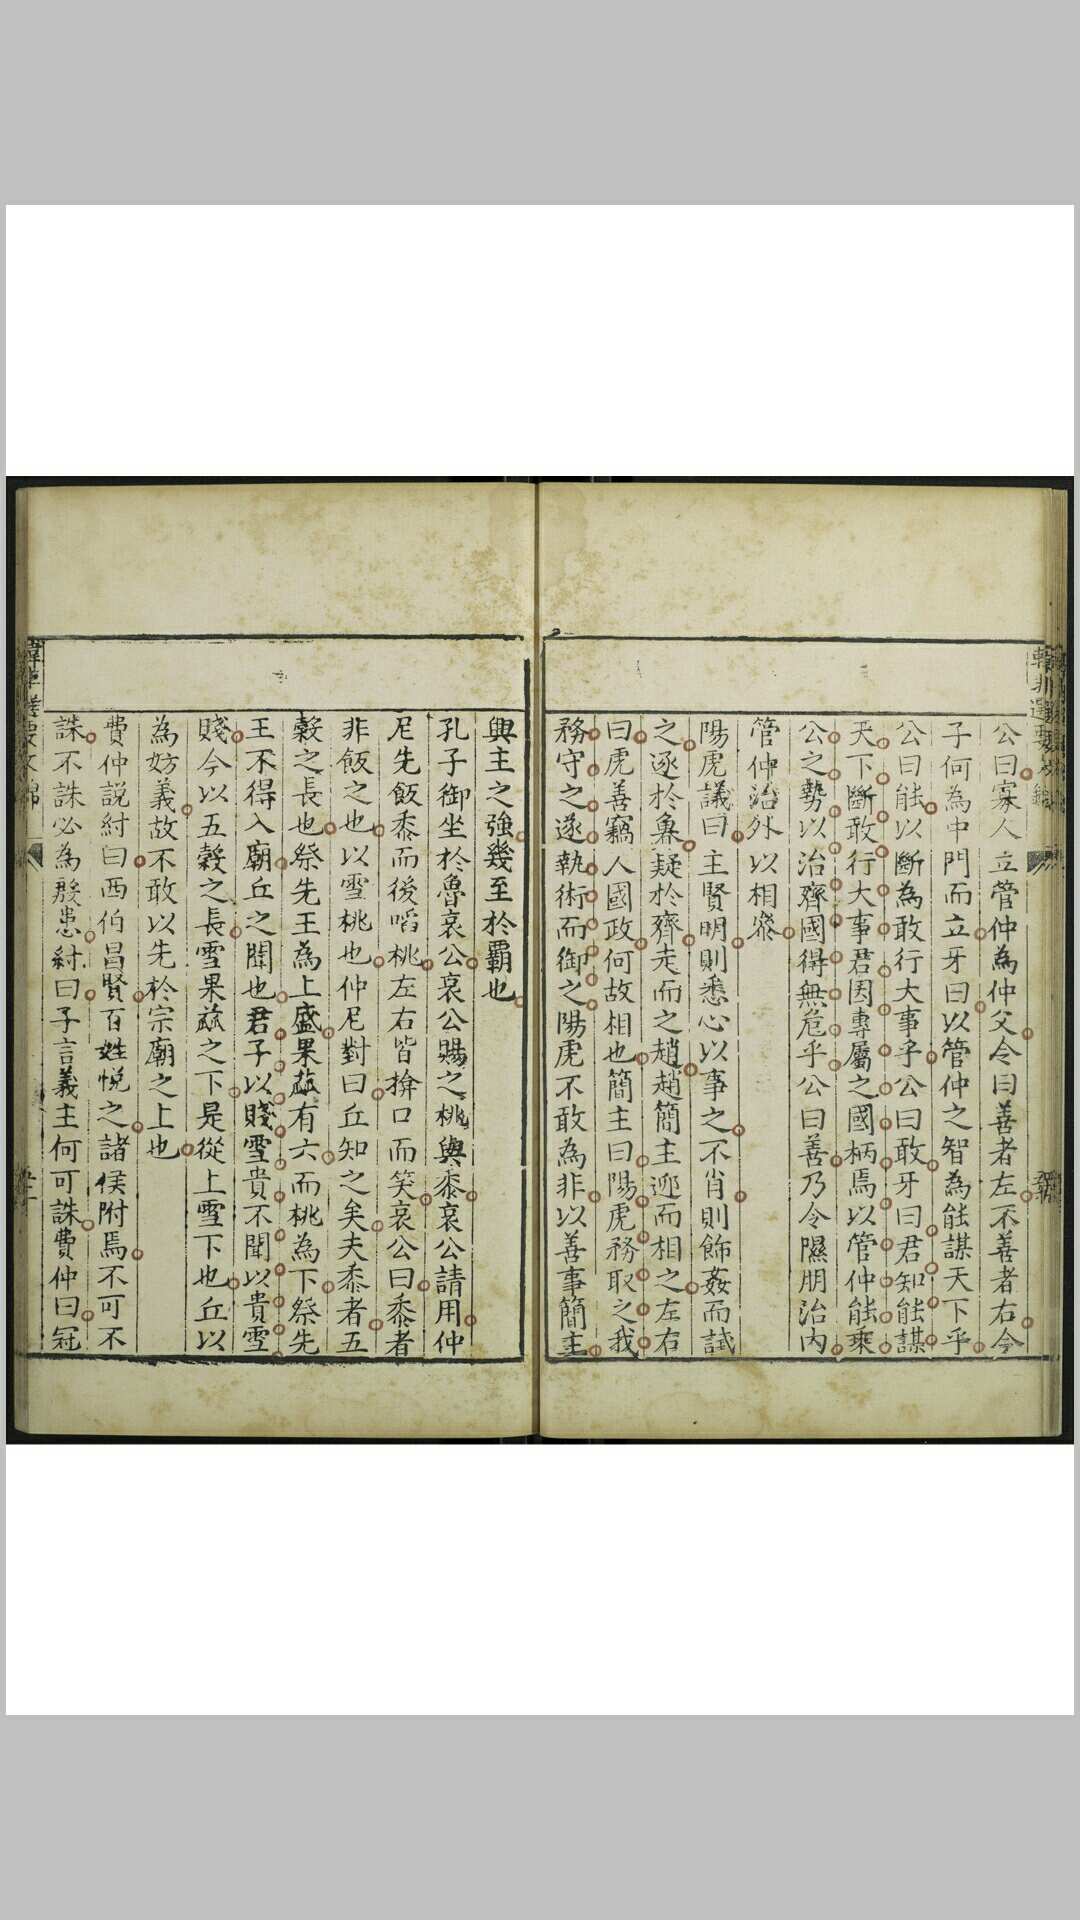 公曰寡人立管仲為仲父令曰善者左不善者右今
子何為中門而立牙曰以管仲之智為能謀天下乎
公曰能以斷為敢行大事乎公曰敢牙曰君知能謀
天下斷敢行大事君因專屬之國柄焉以管仲能乗
公之勢以治齊國得無危乎公曰善乃令隰朋治内
管仲治外以相參
陽虎議曰主賢明則悉心以事之不肖則飾姦而試
之逐於魯疑於齊走而之趙趙簡主迎而相之左右
曰虎善竊人國政何故相也簡主曰陽虎務取之我
務守之遂執術而御之陽虎不敢為非以善事簡主
興主之強幾至於霸也
孔子御坐於魯哀公哀公賜之桃與黍哀公請用仲
尼先飯黍而後啗桃左右皆揜口而笑哀公曰黍者
非飯之也以雪桃也仲尼對曰丘知之矣夫黍者五
穀之長也祭先王為上盛果蓏有六而桃為下祭先
王不得入廟丘之聞也君子以賤雪貴不聞以貴雪
賤今以五穀之長雪果蓏之下是從上雪下也丘以
為妨義故不敢以先於宗廟之上也
費仲説紂曰西伯昌賢百姓悅之諸侯附焉不可不
誅不誅必為殷患紂曰子言義主何可誅費仲曰冠